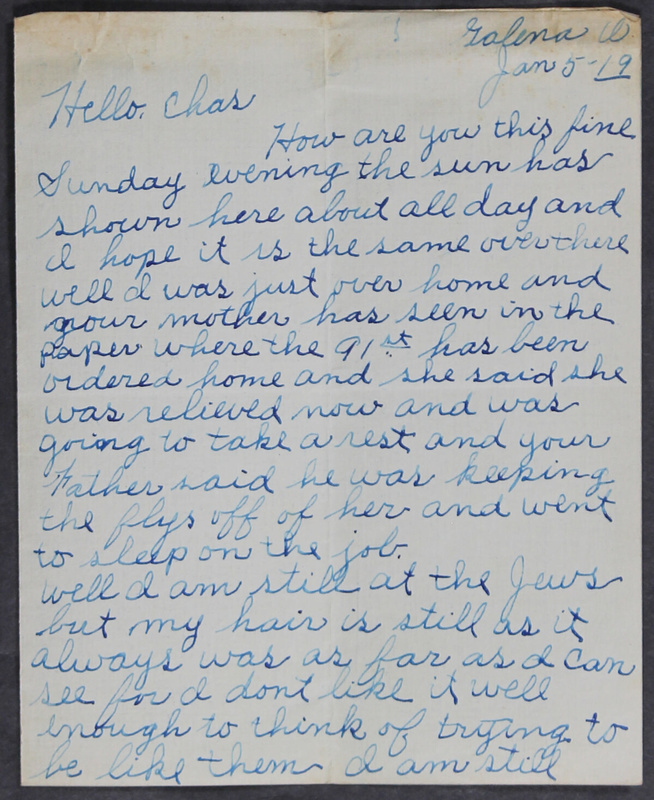 Galena O
Jan 5-19
Hello. Chas
How are you this fine
Sunday evening the sun has
shown here about all day and
I hope it is the same over there
well I was just over home and
your mother has seen in the
paper where the 91st has been
ordered home and she said she
was relieved now and was
going to take a rest and your
Father said he was keeping
the flys off of her and went
to sleep on the job.
well I am still at the Jews
but my hair is still as it
always was as far as I can
see for I dont like it well
enough to think of trying to
be like them I am still